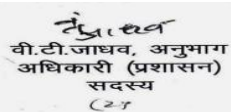 वी.टी.जाधव, अनुभाग
अधिकारी (प्रशासन)
सदस्य
(2)